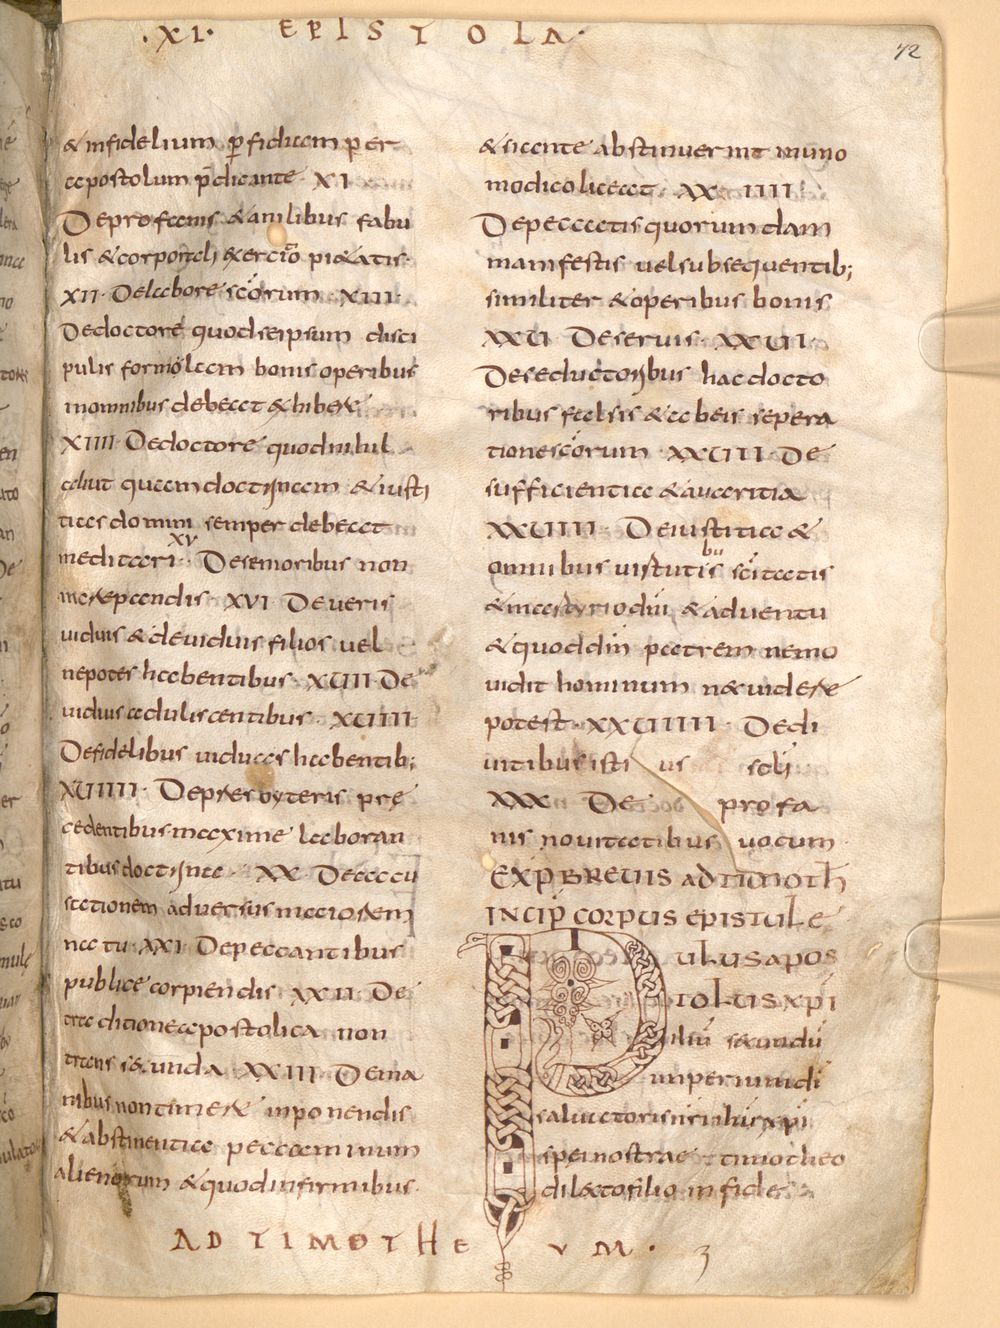 ·XI· EPISTOLA·
72
& infidelium ꝑfidiam per
apostolum p̄dicante· XI
De profanis & anilibus fabu
lis & corporali exercitio pi&atis·
XII· De labore sc̄orum· XIII·
De doctore quod se ipsum disci
pulis formolam bonis operibus
in omnibus debeat exhibere
XIIII· De doctore quod nihil
aliut quam doctrineam & iusti
tias domini semper debeat
meditari· XV· De senioribus non
increpandis· XVI· De veris
viduis & de viduis filios vel
nepotes habentibus· XVII· De
viduis aduliscentibus· XVIII·
De fidelibus viduas habentib;
XVIIII· De presbyteris prę
cedentibus maxime laboran
tibus doctrina· XX· De accu
sationem adversus maiorem
natu· XXI· De peccantibus
publice corpiendis XXII· De
traditione apostolica non
secunda· XXIII· De ma
nibus non timere inponendis
& abstinentia peccaminum
alienorum & quod infirmibus·
AD TIMOTHE
& sicente abstinuerint vino
modico liceat· XXIIII·
De peccatis quorundam
manifestis vel subsequentib;
similiter & operibus bonis
XXV De servis· XXVI·
De seductoribus hac docto
ribus falsis & ab eis sepera
tione sc̄orum· XXVII· De
sufficientia & avaritia
XXVIII· De iustitia &
omnibus virtutibus sc̄itatis
& martyrio dn̄i & adventu
& quod dm̄ patrem nemo
vidit hominum n& videre
potest· XXVIIII· De di
vitibus isti us scl̄i
XXX De profa
nis novitatibus vocum·
EXP̄ BREVIS AD TIMOTH
INCIP̄ CORPUS EPISTULE
PAULUS APOS
TOLUS XPI
secundū
imperium di
salvatoris n̄ri ihū xpi
spei nostrae timotheo
dilecto filio in fide
VM·
3